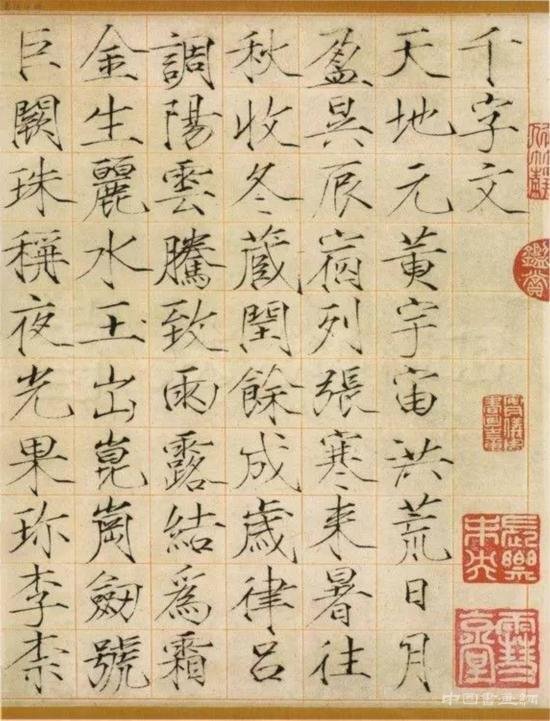 千字文
天地元黃宇宙洪荒日月
盈昃辰宿列張寒来暑往
秋收冬藏閏餘成歲律呂
調陽雲騰致雨露結爲霜
金生麗水玉出崑崗劒號
巨闕珠稱夜光果珎李柰
鑑賞
長樂未央
中国書画網